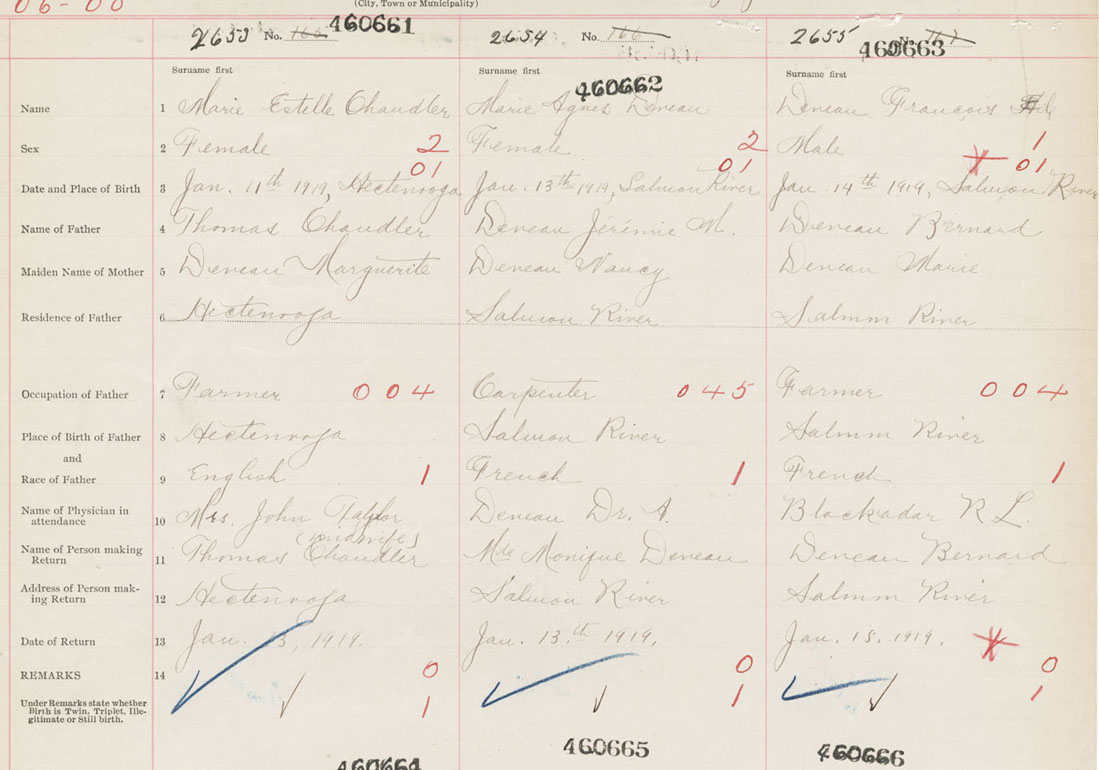 06-00
(City, Town or Municipality)
2653 No. 165 460661 2654 No. 166 2655 No. 167 460663
Surname first Surname first 460662 Surname first
Name 1 Marie Estelle Chandler Marie Agnes Deveau Deveau François
Sex 2 Female 2 Female 2 Male 1
01 01 01
Date and Place of Birth 3 Jan. 11th 1919, Hectenooga Jan. 13th 1919, Salmon River Jan. 14th 1919, Salmon River
Name of Father 4 Thomas Chandler Deveau Jérémie M. Deveau Bernard
Maiden Name of Mother 5 Deveau Marguerite Deveau Nancy Deveau Marie
Residence of Father 6 Hectenooga Salmon River Salmon River
Occupation of Father 7 Farmer 004 Carpenter 045 Farmer 004
Place of Birth of Father 8 Hectenooga Salmon River Salmon River
and
Race of Father 9 English 1 French 1 French 1
Name of Physician in
attendance 10 Mrs. John Taylor Deveau Dr. A. Blackadar R L.
(midwife)
Name of Person making
Return 11 Thomas Chandler Mde Monique Deveau Deveau Bernard
Address of Person mak-
ing Return 12 Hectenooga Salmon River Salmon River
Date of Return 13 Jan. 3, 1919. Jan. 13.th 1919. Jan. 15. 1919.
REMARKS 14 0 0 0
Under Remarks state whether
Birth is Twin, Triplet, Ille-
gitimate or Still birth. 1 1 1
460664 460665 460666